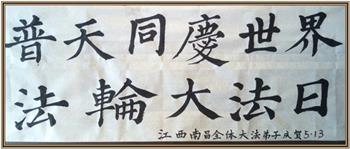 普天同慶世界
法輪大法日
江西南昌全体大法弟子庆贺5·13